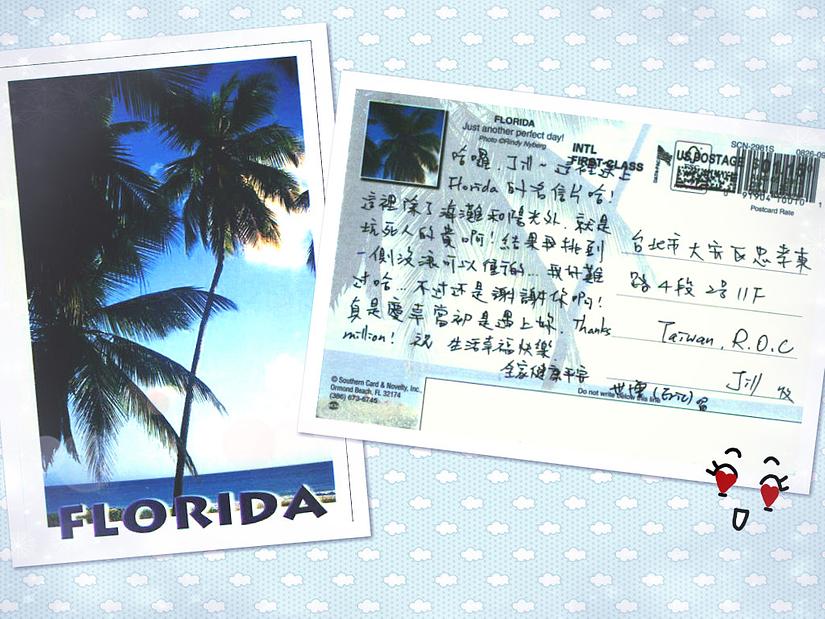 FLORIDA
FLORIDA
Just another perfect day!
Photo ©Rindy Nyberg
INTL
FIRST-CLASS
US POSTAGE
SCN-2981S
Postcard Rate
哈囉, Jill~ 這裡送上
Florida 的名信片哈!
這裡除了海灘和陽光外, 就是
坑死人的貴啊! 結果再挑到
一個沒
可以
的... 我好難
过哈... 不过还是謝謝你啊!
真是慶幸當初是遇上妳. Thanks
million! 祝 生活幸福快樂
全家健康平安
世博 (Eric) 留
台北市大安區忠孝東
路4段2号11F
Taiwan, R.O.C
Jill 收
© Southern Card & Novelty, Inc.
Ormond Beach, FL 32174
(386) 673-6745
Do not write below this line